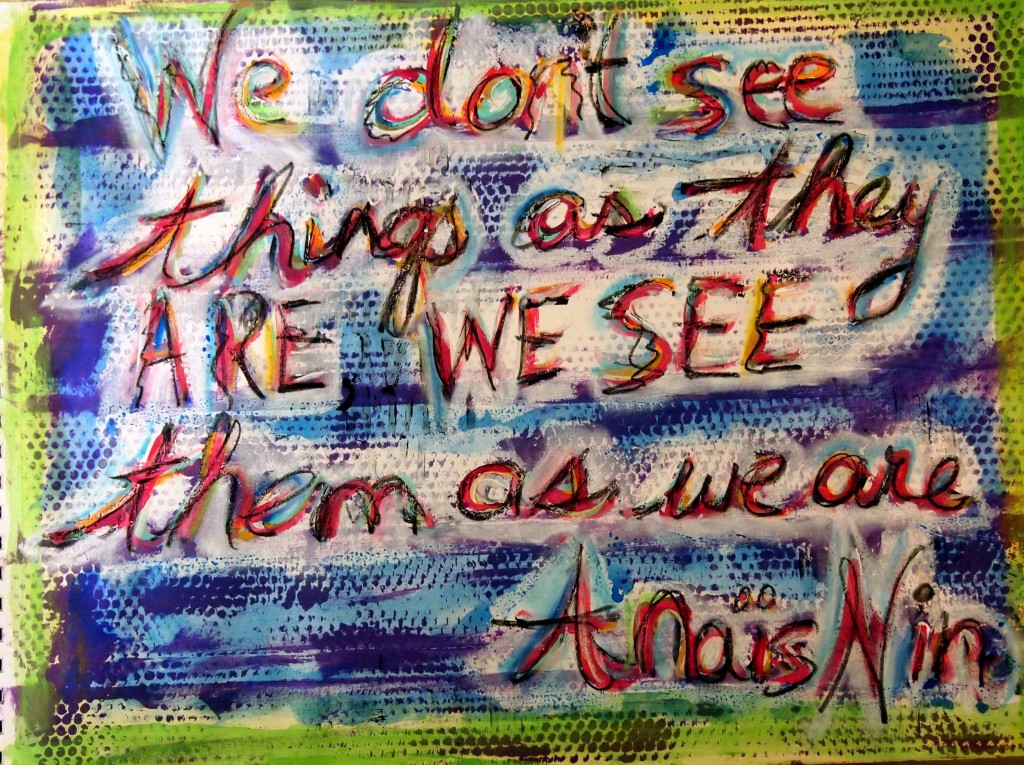 We don't see
things as they
ARE, WE SEE
them as we are
Anaïs Nin